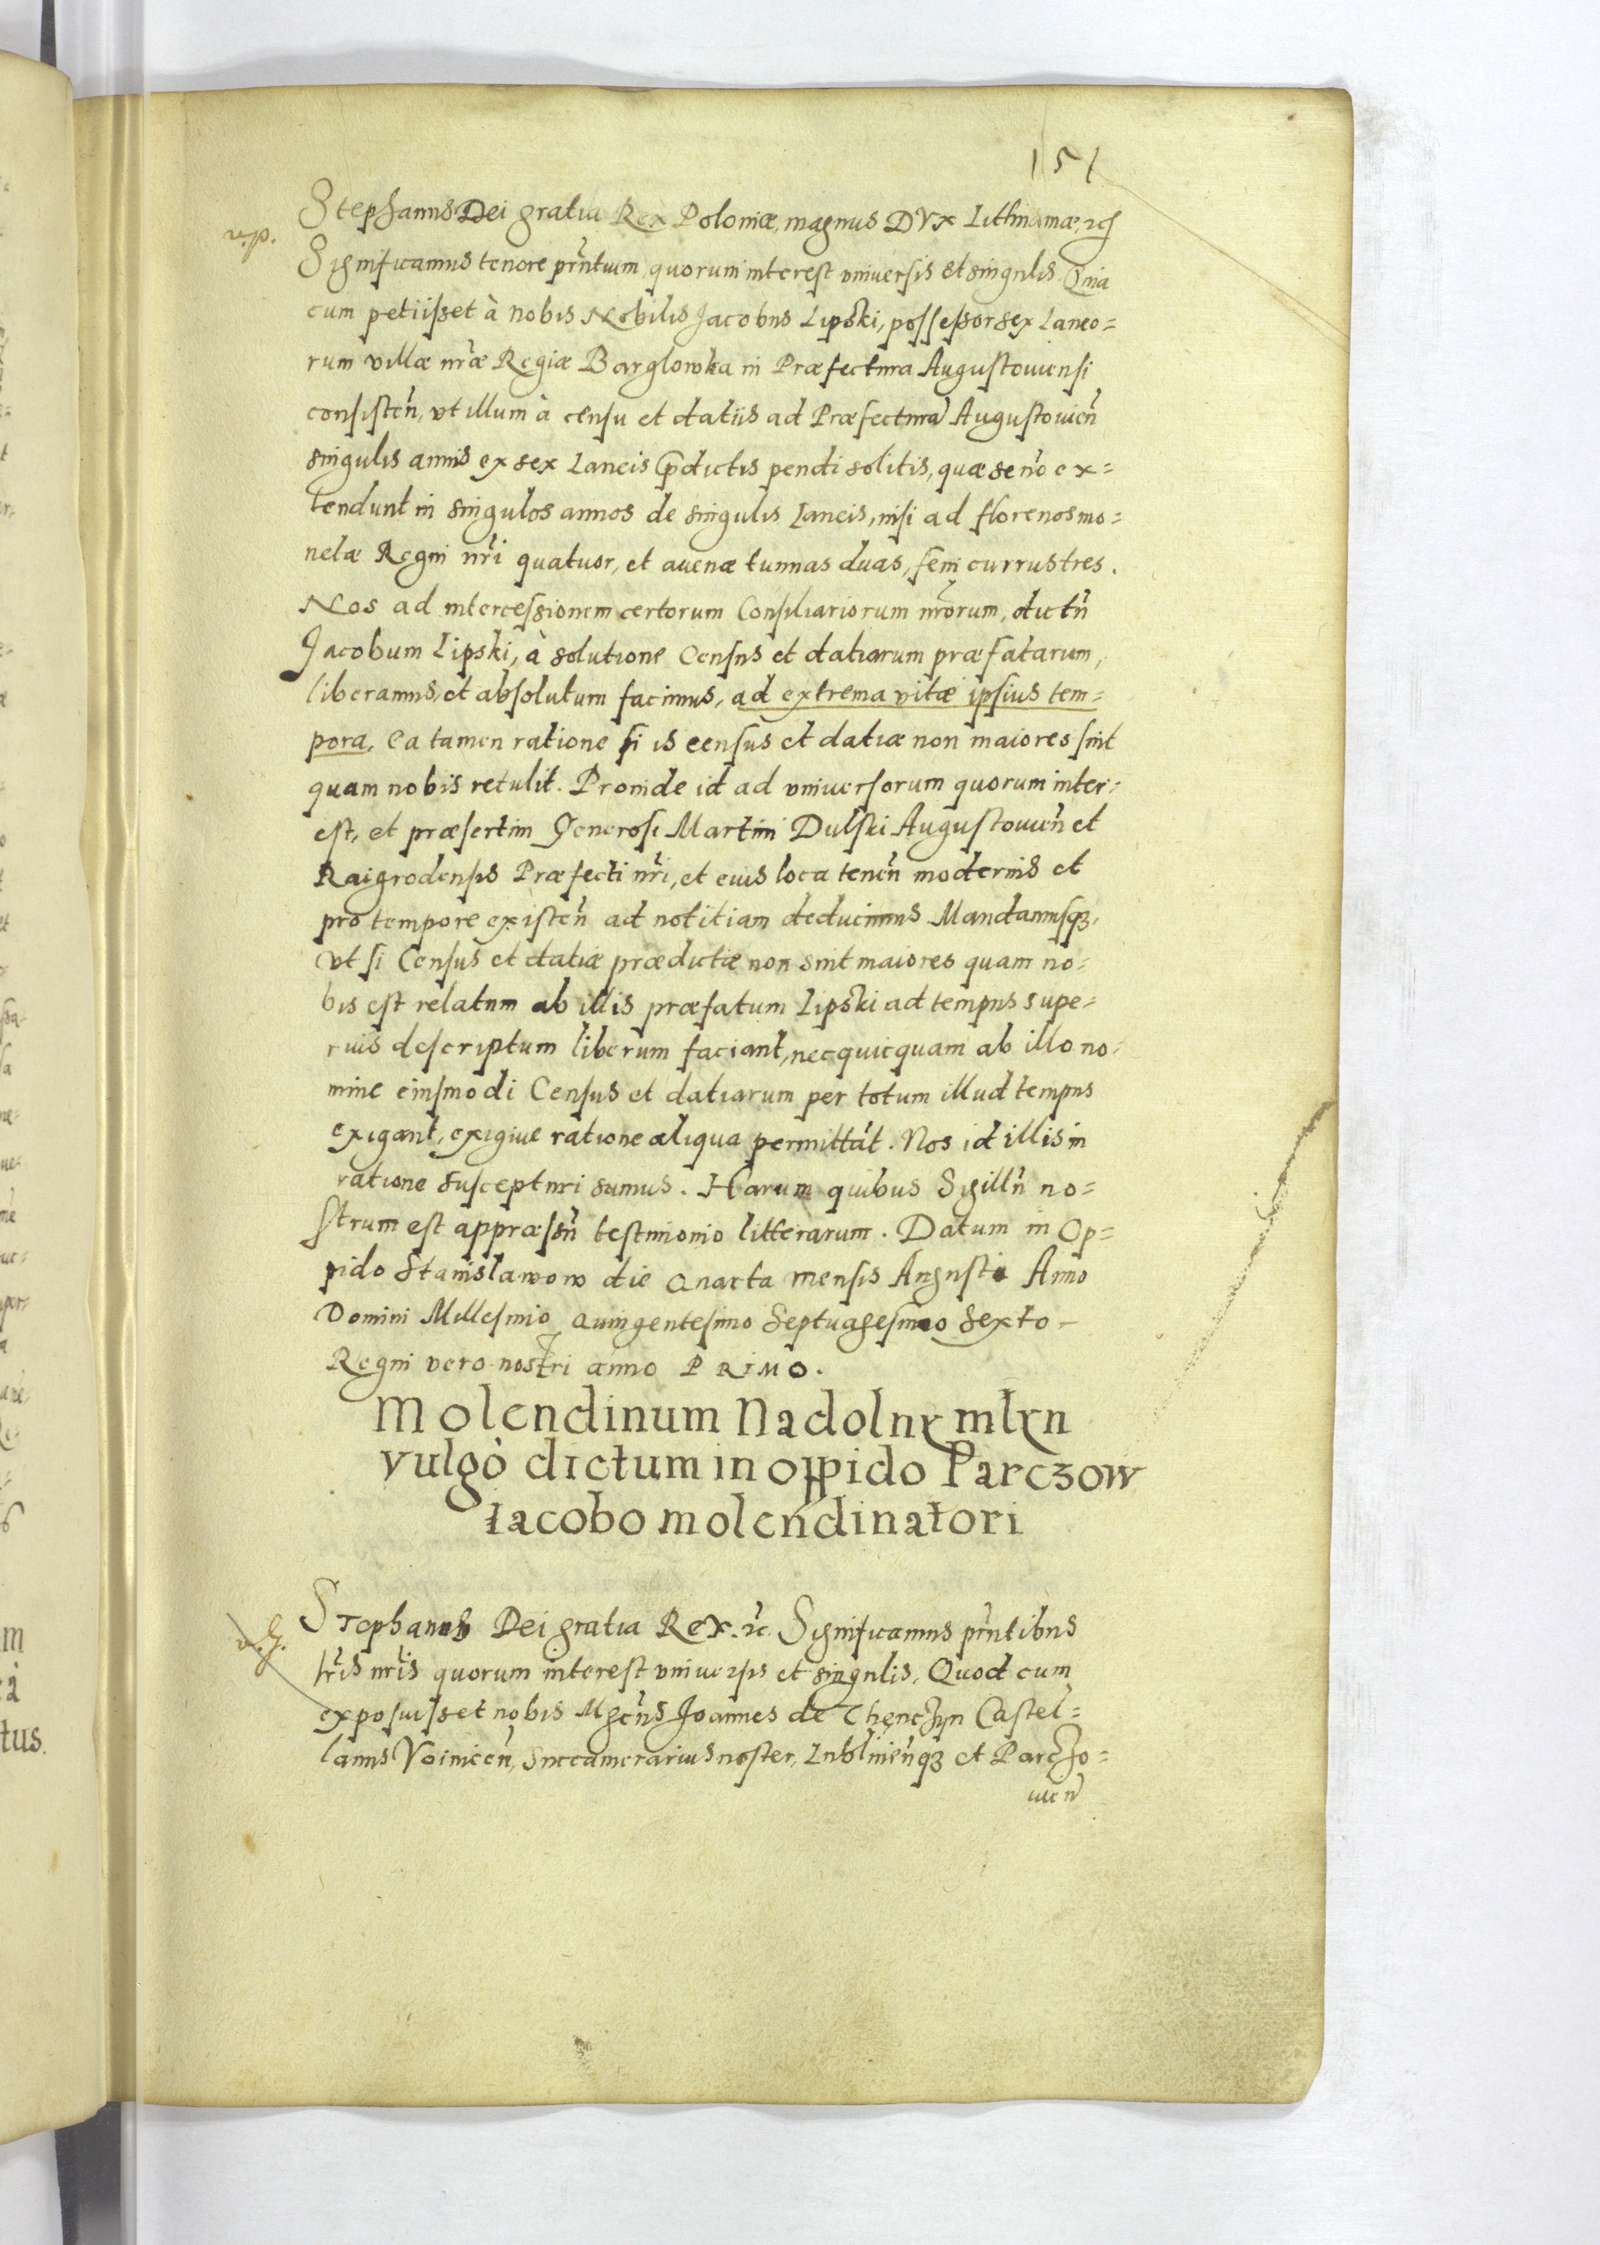 151
Stephanus Dei gratia Rex Poloniæ, magnus DVX Lithuaniæ, zc
v.p.
Significamus tenore prñtium quorum interest vniuersis et singulis. Quia
cum petiisset à nobis Nobilis Jacobus Lipski, possessor sex Laneo=
rum villæ nr̃æ Regiæ Barglowka in Præfectura Augustouiensi
consisteñ, vt illum à censu et datiis ad Præfecturã Augustouieñ
singulis annis ex sex Laneis p̃dictis pendi solitis, quæ se nõ ex=
tendunt in singulos annos de singulis Laneis, nisi ad florenos mo=
netæ Regni nr̃i quatuor, et auenæ tunnas duas, feni currus tres.
Nos ad intercessionem certorum Consiliariorum nr̃orum, dictũ
Jacobum Lipski, à solutione Census et datiarum præfatarum,
liberamus, et absolutum facimus, ad extrema vitæ ipsius tem=
pora, ea tamen ratione si is census et datiæ non maiores sint
quam nobis retulit. Proinde id ad vniuersorum quorum inter=
est, et præsertim Generosi Martini Dulski Augustouieñ et
Raigrodensis Præfecti nr̃i, et eius loca teneñ modernis et
pro tempore existeñ ad notitiam deducimus Mandamusq3,
vt si Census et datiæ prædictæ non sint maiores quam no=
bis est relatum ab illis præfatum Lipski ad tempus supe=
rius descriptum liberum faciant, nec quicquam ab illo no=
mine eiusmodi Census et datiarum per totum illud tempus
exigant, exigiue ratione aliqua permittãt. Nos id illis in
ratione suscepturi sumus. Harum quibus Sigillũ no=
strum est appræsũ testimonio litterarum. Datum in Op=
pido Stanislawow die Quarta mensis Augusti Anno
Domini Millesimo Quingentesimo Septuagesimo Sexto
Regni vero nostri anno PRIMO.
Molendinum Nadolny mlyn
vulgò dictum in oppido Parczow
Iacobo molendinatori
Stephanus Dei gratia Rex. zc. Significamus prñtibus
v. G.
lr̃is nr̃is quorum interest vniuersis et singulis. Quod cum
exposuisset nobis Mgcũs Joannes de Thenczyn Castel=
lanus Voiniceñ, Succamerarius noster, Lublinieñq3 et Parczo=
uieñ